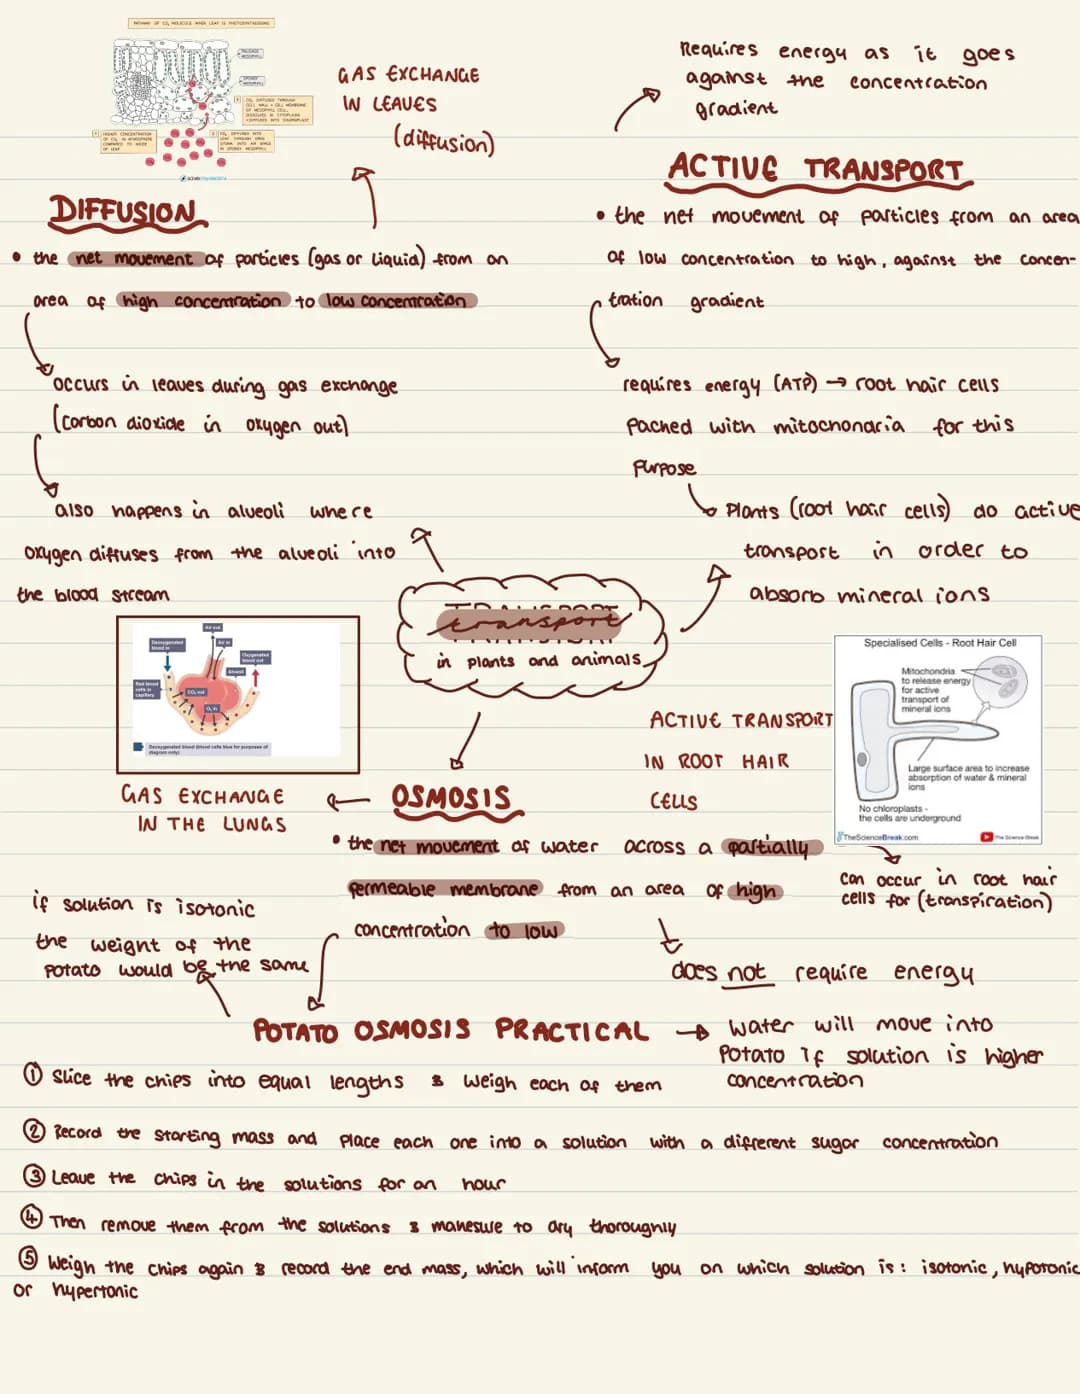 PATHWAY OF CO₂ MOLECULE WHEN LEAF IS PHOTOSYNTHESISING
PALISADE MESOPHYLL
SPONGY MESOPHYLL
3 CO₂ DIFFUSES THROUGH
CELL WALL + CELL MEMBRANE
OF MESOPHYLL CELL,
DISSOLVES IN CYTOPLASM
+ DIFFUSES INTO CHLOROPLAST
1 HIGHER CONCENTRATION
OF CO₂ IN ATMOSPHERE
COMPARED TO INSIDE
OF LEAF
2 CO₂ DIFFUSES INTO
LEAF THROUGH OPEN
STOMA INTO AIR SPACE
IN SPONGY MESOPHYLL
GAS EXCHANGE
IN LEAVES
(diffusion)
Requires energy as it goes
against the concentration
gradient
DIFFUSION
• the net movement of particles (gas or liquid) from an
area of high concentration to low concentration
occurs in leaves during gas exchange
(carbon dioxide in oxygen out)
also happens in alveoli where
oxygen diffuses from the alveoli into
the blood stream
ACTIVE TRANSPORT
• the net movement of particles from an area
of low concentration to high, against the concen-
tration gradient
requires energy (ATP) → root hair cells
packed with mitochondria for this
purpose
Plants (root hair cells) do active
transport in order to
absorb mineral ions
transport
in plants and animals
Air out
Air in
Deoxygenated
blood in
Oxygenated
blood out
Alveoli
Red blood
cells in
capillary
CO₂ out
O₂ in
Deoxygenated blood (blood cells blue for purposes of
diagram only)
GAS EXCHANGE
IN THE LUNGS
ACTIVE TRANSPORT
IN ROOT HAIR
CELLS
Specialised Cells - Root Hair Cell
Mitochondria
to release energy
for active
transport of
mineral ions
Large surface area to increase
absorption of water & mineral
ions
No chloroplasts -
the cells are underground
TheScienceBreak.com
The Science Break
can occur in root hair
cells for (transpiration)
OSMOSIS
• the net movement of water across a partially
permeable membrane from an area of high
concentration to low
does not require energy
if solution is isotonic
the weight of the
potato would be the same
POTATO OSMOSIS PRACTICAL → water will move into
potato if solution is higher
concentration
① Slice the chips into equal lengths & weigh each of them
② Record the starting mass and place each one into a solution with a different sugar concentration
③ Leave the chips in the solutions for an hour
④ Then remove them from the solutions & makesure to dry thoroughly
⑤ Weigh the chips again & record the end mass, which will inform you on which solution is: isotonic, hypotonic
or hypertonic